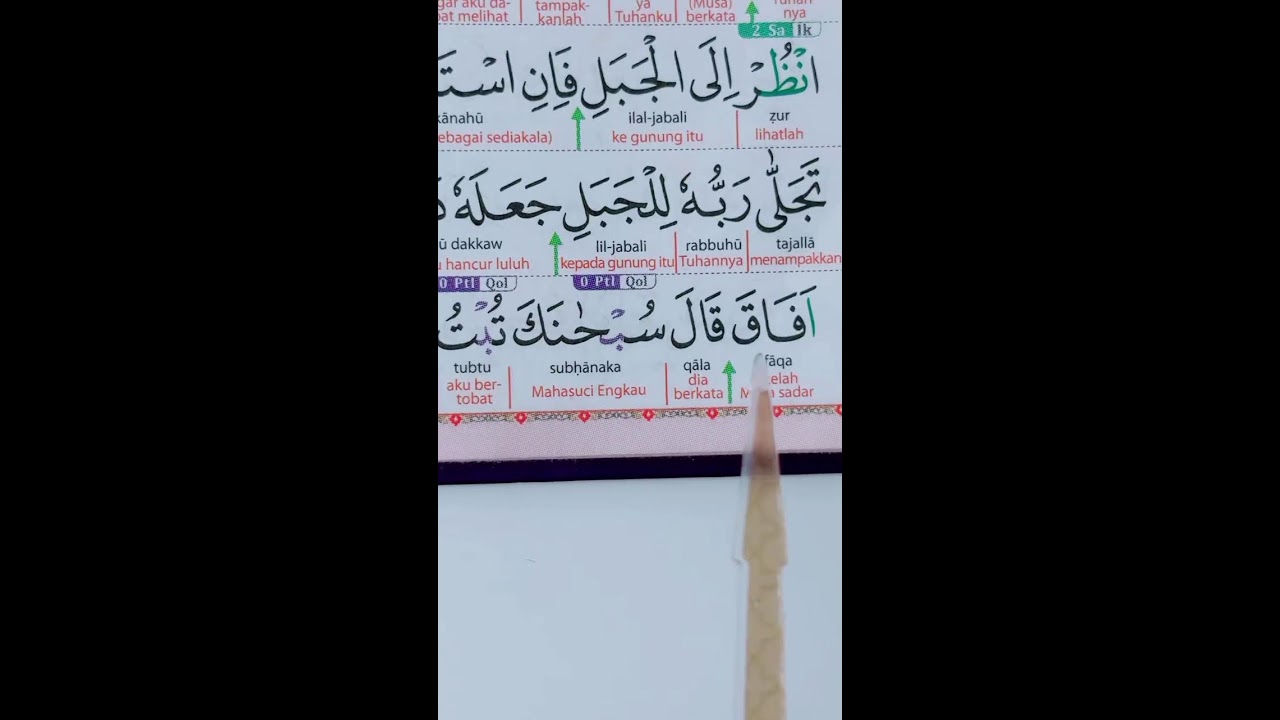 gar aku da- tampak- ya (Musa) Tuhan
pat melihat kanlah Tuhanku berkata nya
2 Sa Ik
انْظُرْ اِلَى الْجَبَلِ فَاِنِ اسْتَ
kānahū ilal-jabali ẓur
ebagai sediakala) ke gunung itu lihatlah
تَجَلّٰى رَبُّهٗ لِلْجَبَلِ جَعَلَهٗ
ū dakkaw lil-jabali rabbuhū tajallā
hancur luluh kepada gunung itu Tuhannya menampakkan
0 Ptl Qol 0 Ptl Qol
اَفَاقَ قَالَ سُبْحٰنَكَ تُبْتُ
tubtu subḥānaka qāla fāqa
aku ber- Mahasuci Engkau dia elah
tobat berkata sadar